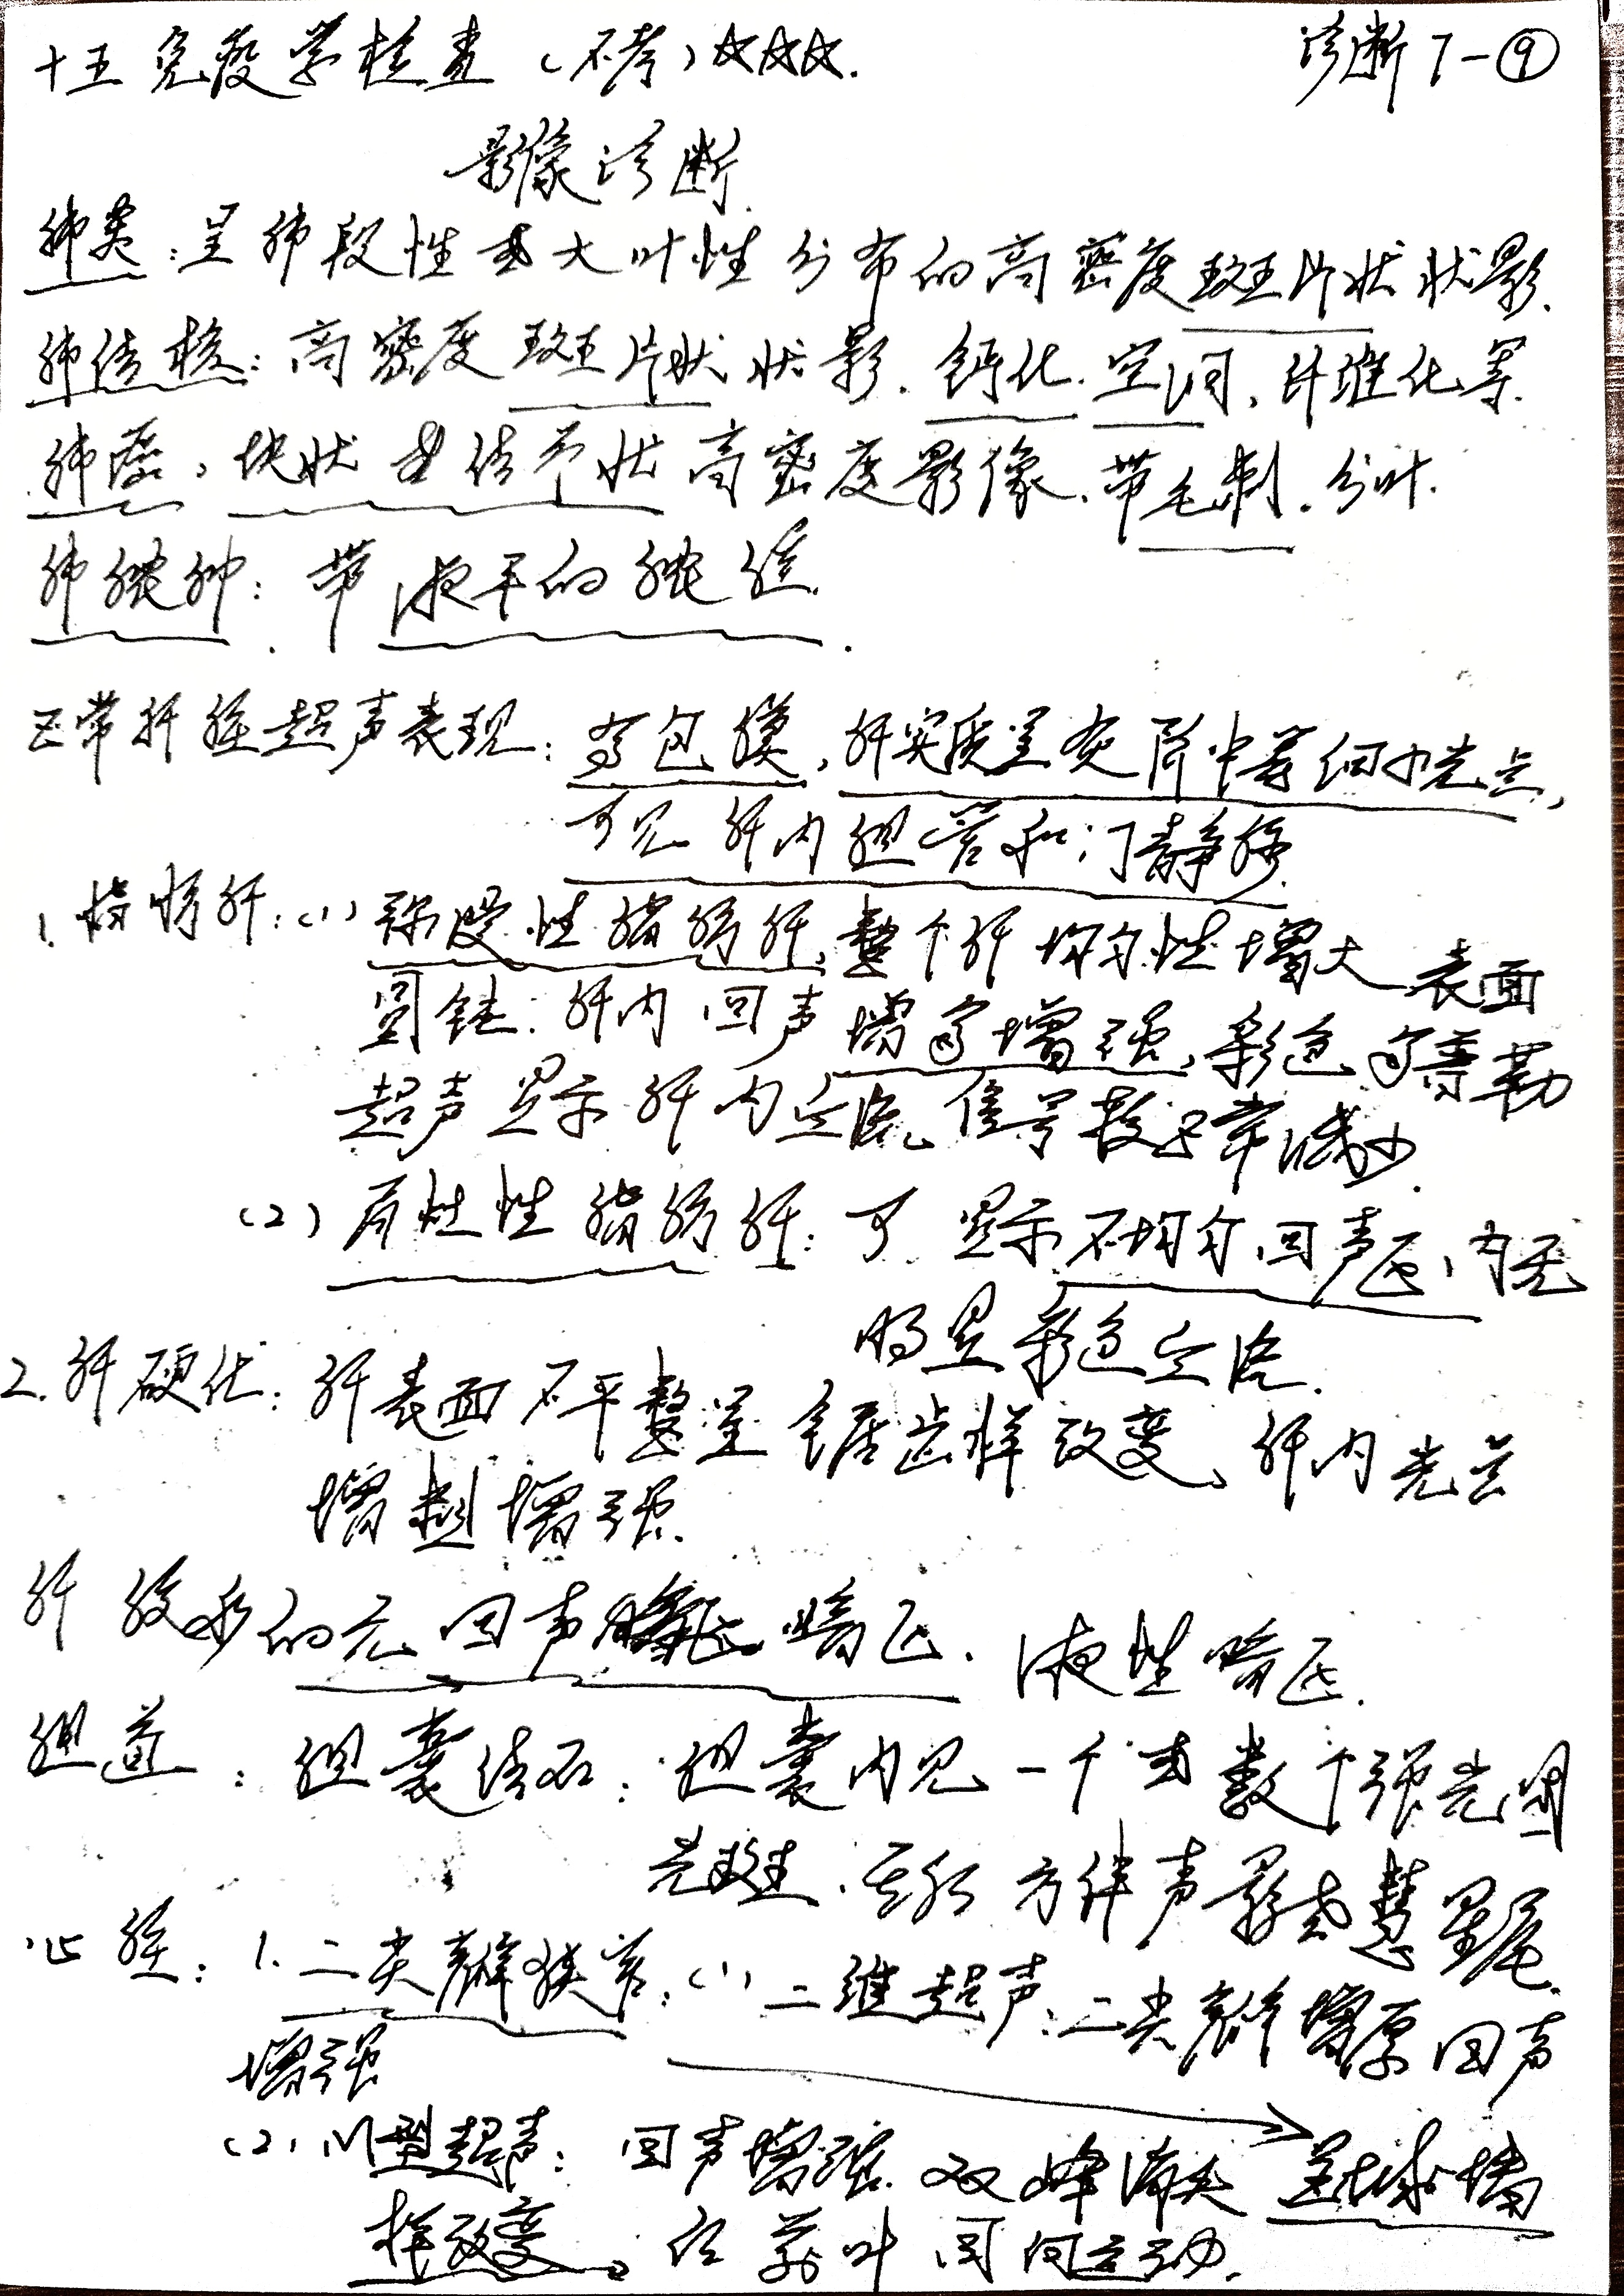 十五 免疫学检查（不考）☆☆☆. 诊断7-⑨
影像诊断
肺炎：呈肺段性或大叶性分布的高密度斑片状状影.
肺结核：高密度斑片状状影.钙化.空洞、纤维化等.
肺癌、块状或结节状高密度影像、带毛刺.分叶.
肺脓肿：带液平的脓腔.
正常肝脏超声表现：有包膜，肝实质呈灰阶中等细小光点，
可见肝内胆管和门静脉.
1.脂肪肝：(1)弥漫性脂肪肝，整个肝均匀性增大 表面
圆钝：肝内回声增多增强，彩色多普勒
超声显示肝内血流信号较正常减少.
(2)局灶性脂肪肝：可显示不均匀回声区，内无
明显彩色血流.
2.肝硬化：肝表面不平整呈锯齿样改变、肝内光点
增粗增强.
肝 的无回声暗区.液性暗区.
胆道：胆囊结石：胆囊内见一个或数个强光团
光斑.其后方伴声影或慧星尾.
心脏：1.二尖瓣狭窄：(1)二维超声：二尖瓣增厚回声
增强
(2)M型超声：回声增强.双峰消失 呈城墙
样改变、后前叶同向运动.